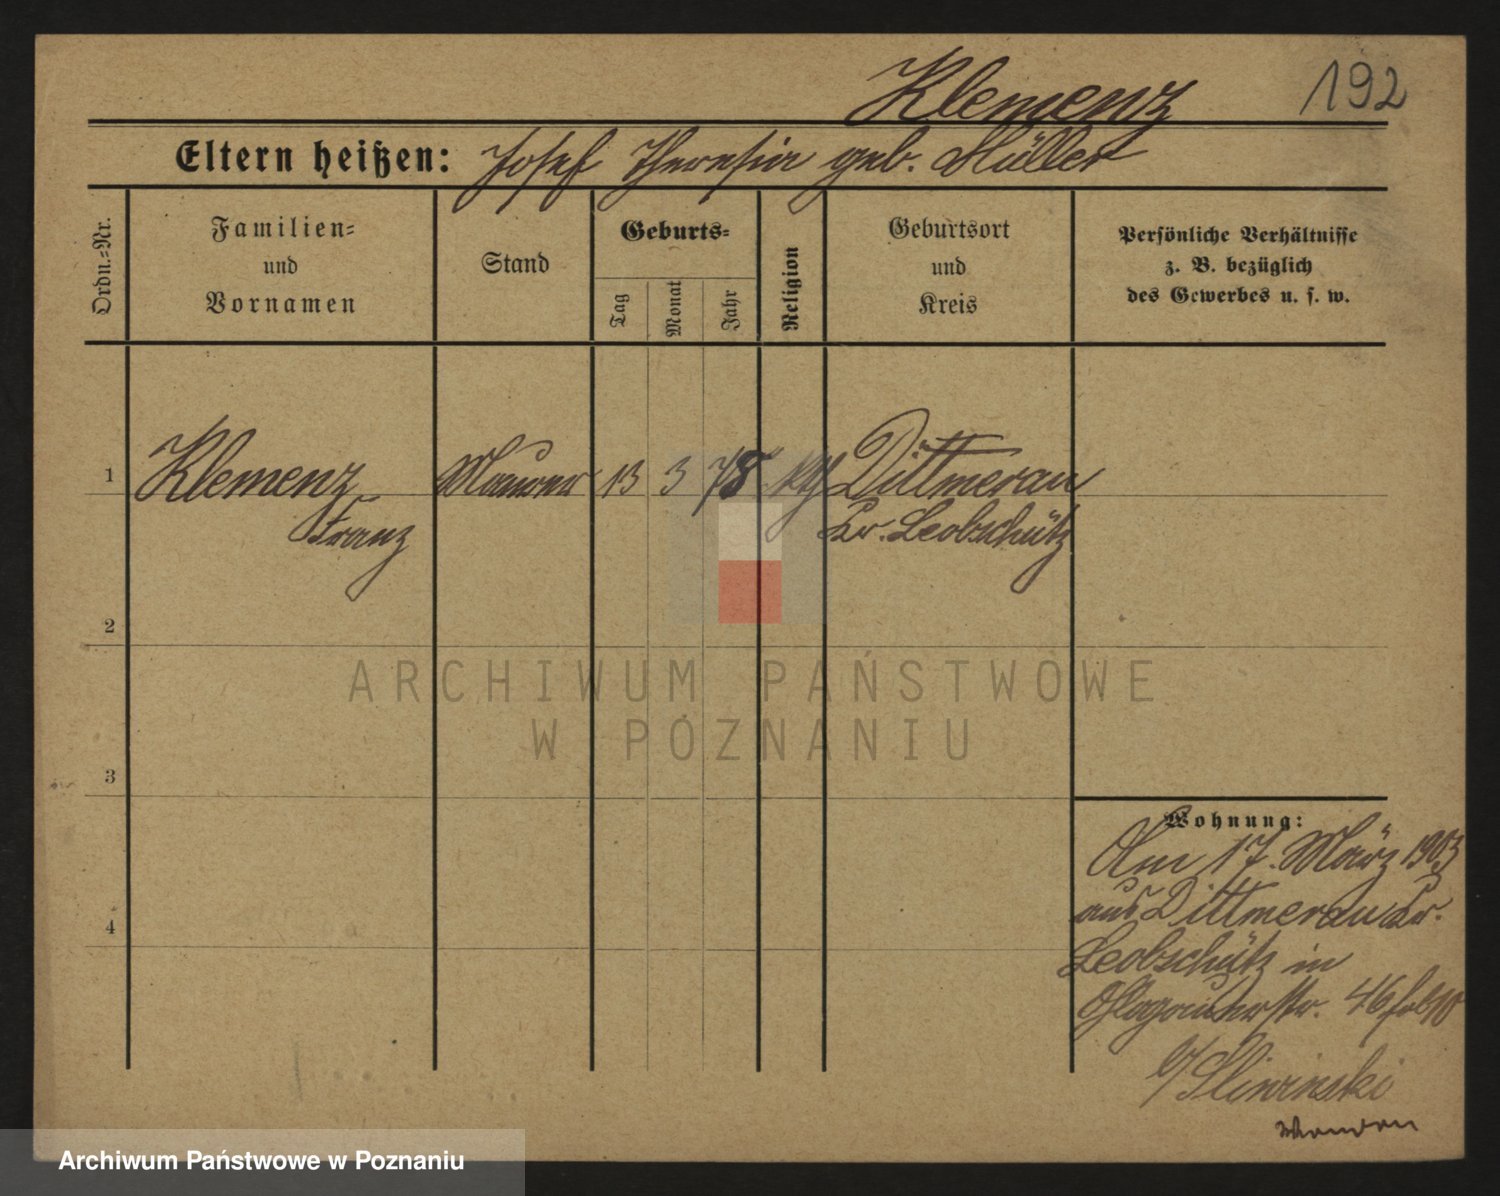 Klemenz
192
Eltern heißen: Josef Theresia geb. Müller
Ordn.-Nr.
Familien-
und
Vornamen
Stand
Geburts-
Tag
Monat
Jahr
Religion
Geburtsort
und
Kreis
Persönliche Verhältnisse
z. B. bezüglich
des Gewerbes u. s. w.
1 Klemenz Maurer 13 3 78 kth Dittmerau
Franz Kr. Leobschütz
2
3
4
Wohnung:
Am 17. März 1903
aus Dittmerau Kr.
Leobschütz in
Glogauerstr. 46
b/ Sliwinski
ARCHIWUM PAŃSTWOWE
W POZNANIU
Archiwum Państwowe w Poznaniu